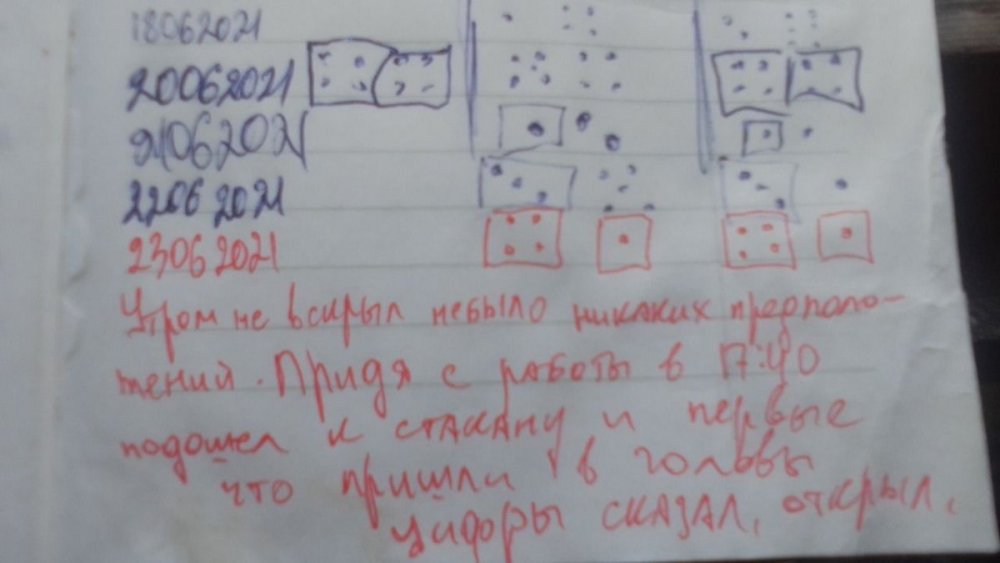 18062021
20062021
21062021
22062021
23062021
Утром не вскрыл небыло никаких предполо-
жений. Придя с работы в 17:40
подошел к стакану и первые
что пришли в головы
цифры сказал, открыл.